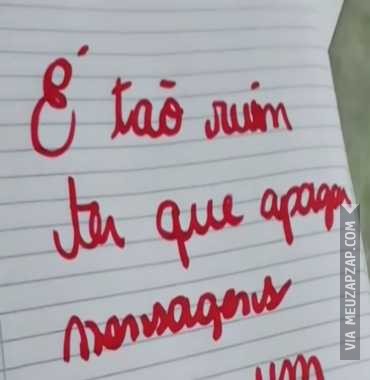 É tão ruim
ter que apagar
mensagens
um
VIA MEUZAPZAP.COM